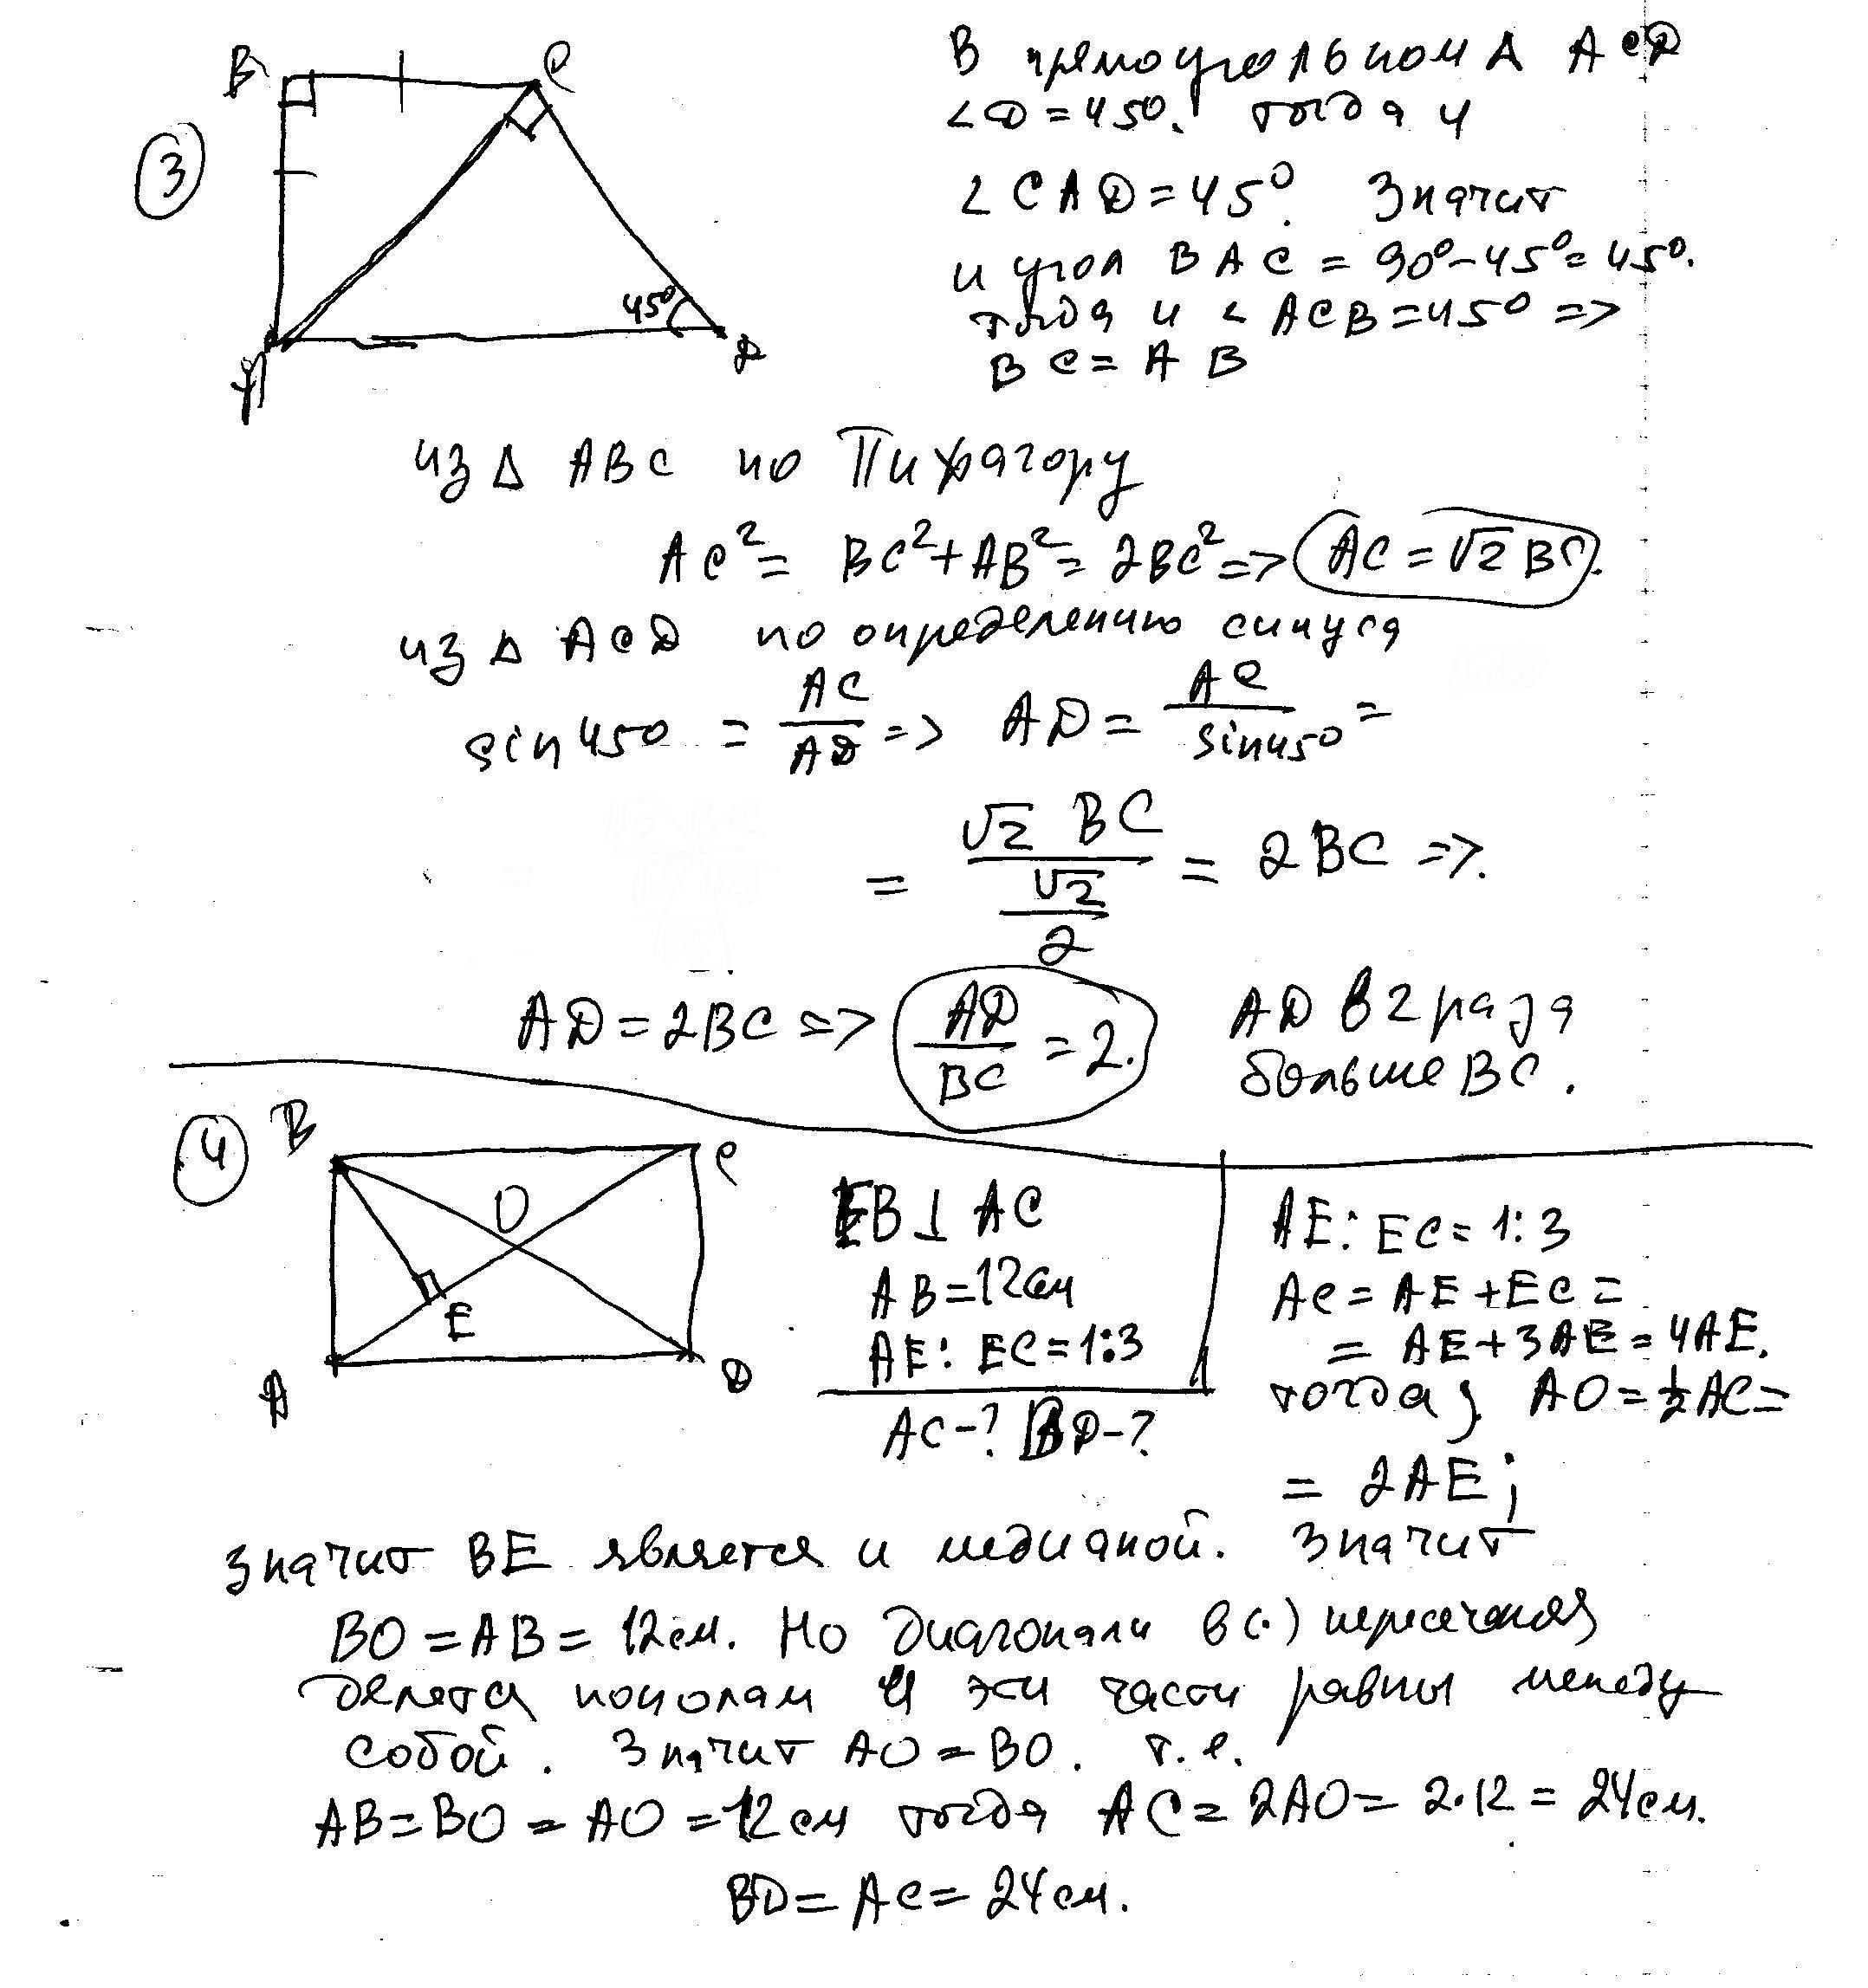 3
B C
45°
A D
В прямоугольном Δ ACD
∠D = 45°. тогда и
∠CAD = 45°. Значит
и угол BAC = 90° - 45° = 45°.
тогда и ∠ACB = 45° =>
BC = AB
из Δ ABC по Пифагору
AC² = BC² + AB² = 2BC² => AC = √2 BC.
из Δ ACD по определению синуса
sin 45° = AC/AD => AD = AC/sin45° =
= √2 BC / (√2/2) = 2BC =>.
AD = 2BC => AD/BC = 2. AD в 2 раза
больше BC.
4
B C
O
E
A D
EB ⊥ AC
AB = 12 см
AE : EC = 1:3
AC - ? BD - ?
AE : EC = 1:3
AC = AE + EC =
= AE + 3AE = 4AE.
тогда; AO = ½ AC =
= 2AE;
значит BE является и медианой. Значит
BO = AB = 12 см. Но диагонали в (·) пересечения
делятся пополам и эти части равны между
собой. Значит AO = BO. т.е.
AB = BO = AO = 12 см тогда AC = 2AO = 2·12 = 24 см.
BD = AC = 24 см.